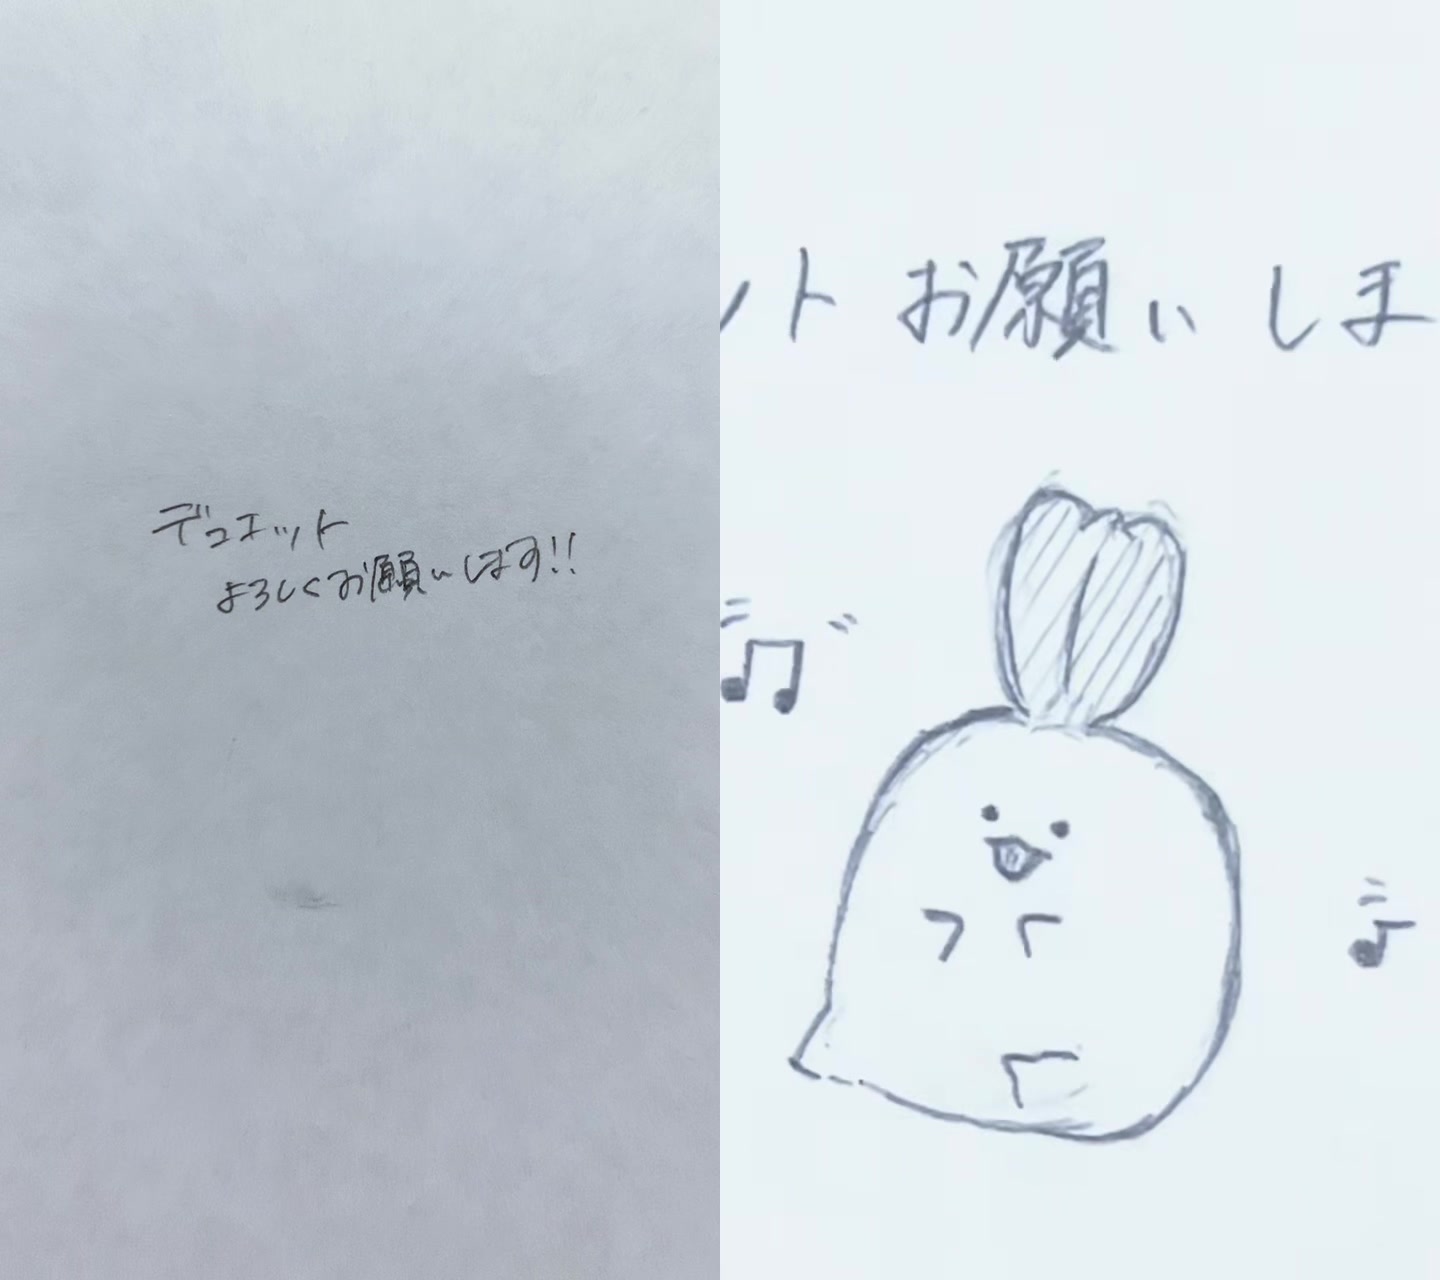 デュエット
よろしくお願いします!!
ット お願いしま